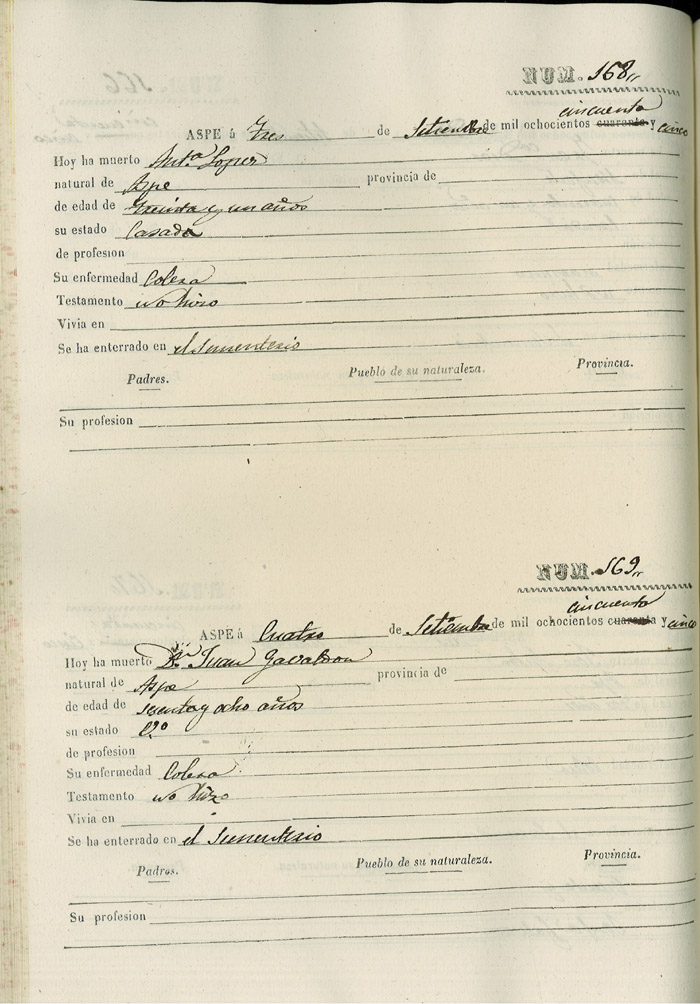 NUM. 168,,
cincuenta
ASPE á Tres de Setiembre de mil ochocientos cuarenta y cinco
Hoy ha muerto Ant.ª Lopez
natural de Aspe provincia de
de edad de Treinta y un años
su estado Casada
de profesion
Su enfermedad Colera
Testamento no hizo
Vivia en
Se ha enterrado en el Sementerio
Padres. Pueblo de su naturaleza. Provincia.
Su profesion
NUM. 169,,
cincuenta
ASPE á Cuatro de Setiembre de mil ochocientos cuarenta y cinco
Hoy ha muerto D.n Juan
natural de Aspe
provincia de
de edad de secenta y ocho años
su estado
de profesion
Su enfermedad Colera
Testamento no hizo
Vivia en
Se ha enterrado en el Sementerio
Padres. Pueblo de su naturaleza. Provincia.
Su profesion